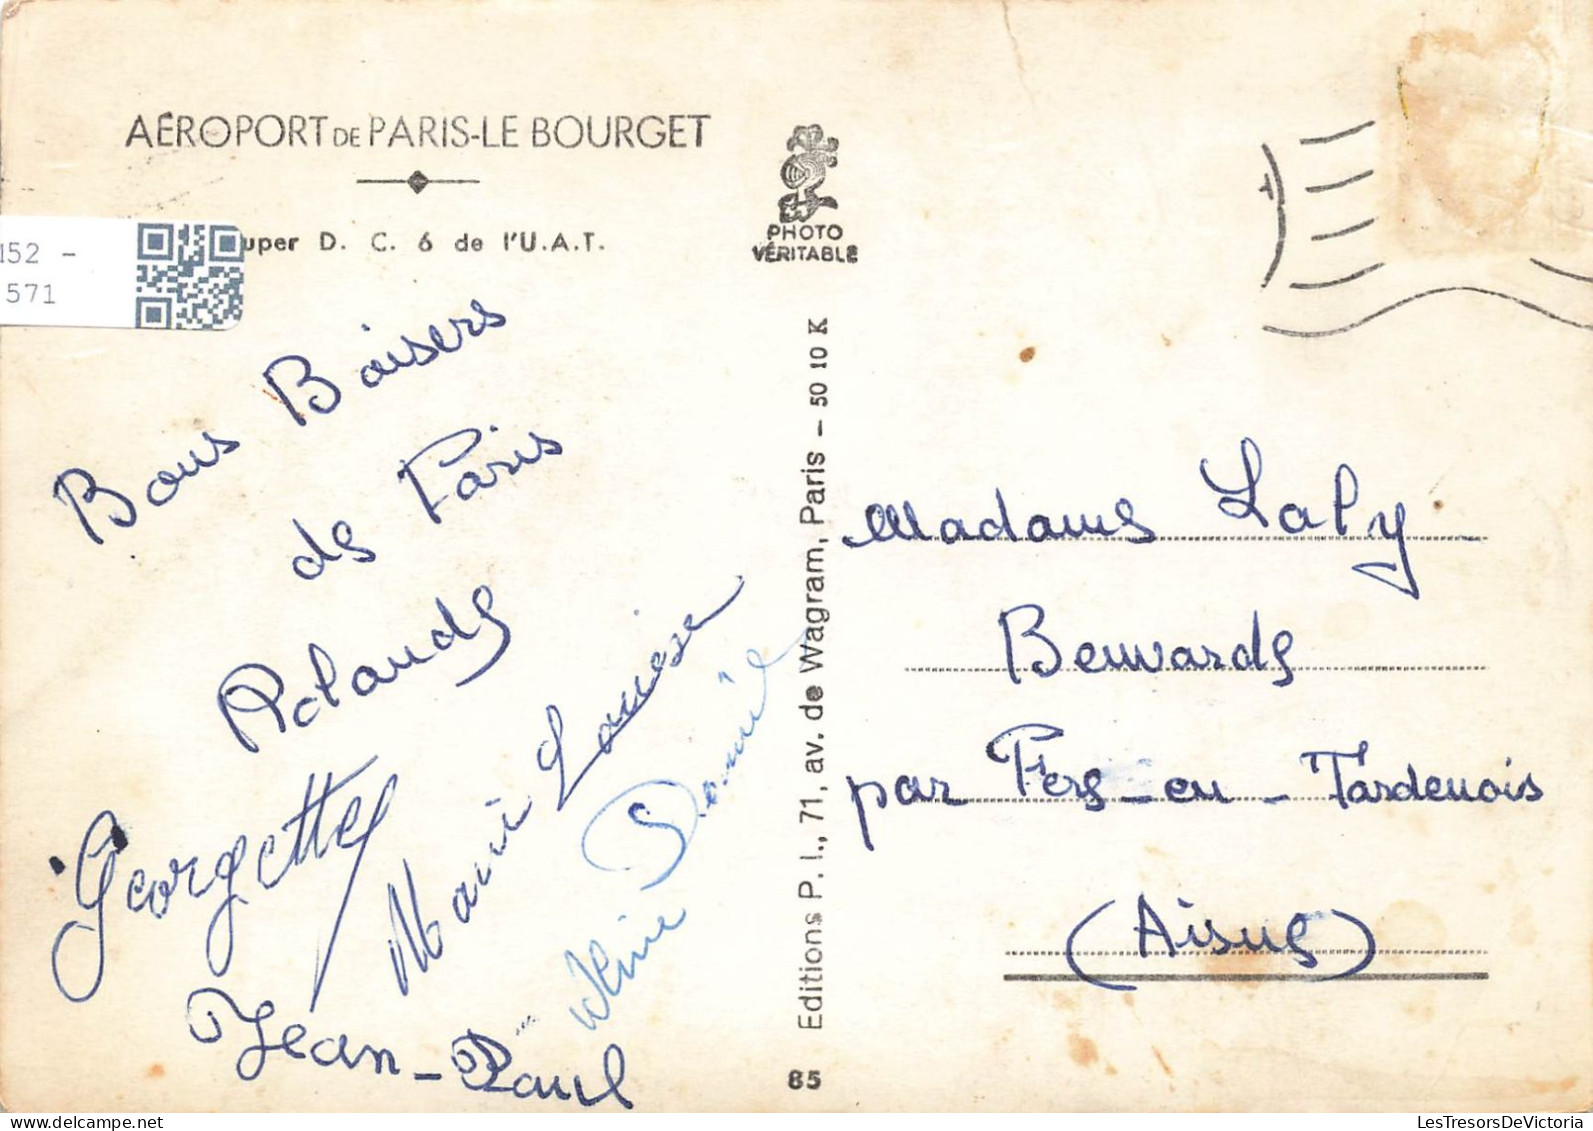 AÉROPORT DE PARIS-LE BOURGET
uper D. C. 6 de l'U.A.T.
152 -
571
PHOTO
VÉRITABLE
Bons Baisers
de Paris
Rolande
Georgette
Marie Louise
Daniel
Jean-Paul
Editions P. I., 71, av. de Wagram, Paris - 50 10 K
85
Madame Laly
Beuvarde
par Fere-en-Tardenois
(Aisne)
LesTresorsDeVictoria
www.delcampe.net